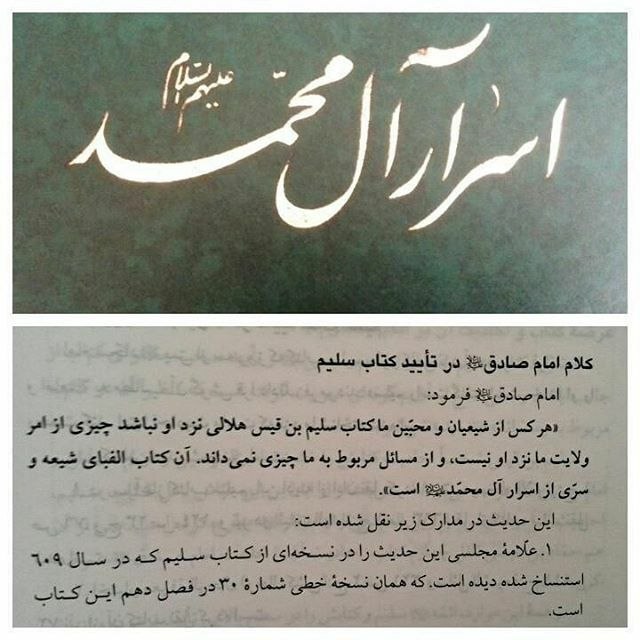 اسرار آل محمد
علیهم السلام
کلام امام صادق علیه السلام در تأیید کتاب سلیم
امام صادق علیه السلام فرمود:
«هر کس از شیعیان و محبّین ما کتاب سلیم بن قیس هلالی نزد او نباشد چیزی از امر
ولایت ما نزد او نیست، و از مسائل مربوط به ما چیزی نمی‌داند. آن کتاب الفبای شیعه و
سرّی از اسرار آل محمّد علیهم السلام است».
این حدیث در مدارک زیر نقل شده است:
۱. علّامهٔ مجلسی این حدیث را در نسخه‌ای از کتاب سلیم که در سال ۶۰۹
استنساخ شده دیده است، که همان نسخهٔ خطی شمارهٔ ۳۰ در فصل دهم این کتاب
است.